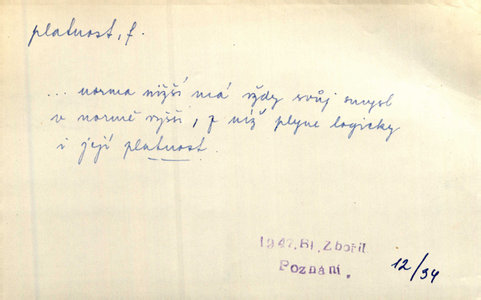 platnost, f.
... norma nižší má vždy svůj smysl
v normě vyšší, z níž plyne logicky
i její platnost.
1947. Bl. Zbořil
Poznání.
12/94